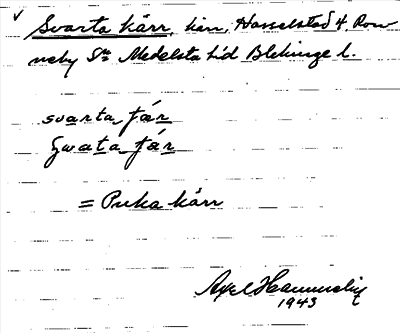 √ Svarta kärr, kärr, Hasselstad 4, Ron
neby Sn Medelsta hd Blekinge l.
svarta tjär
Swata tjär
= Puka kärr
Axel Hammelin
1943